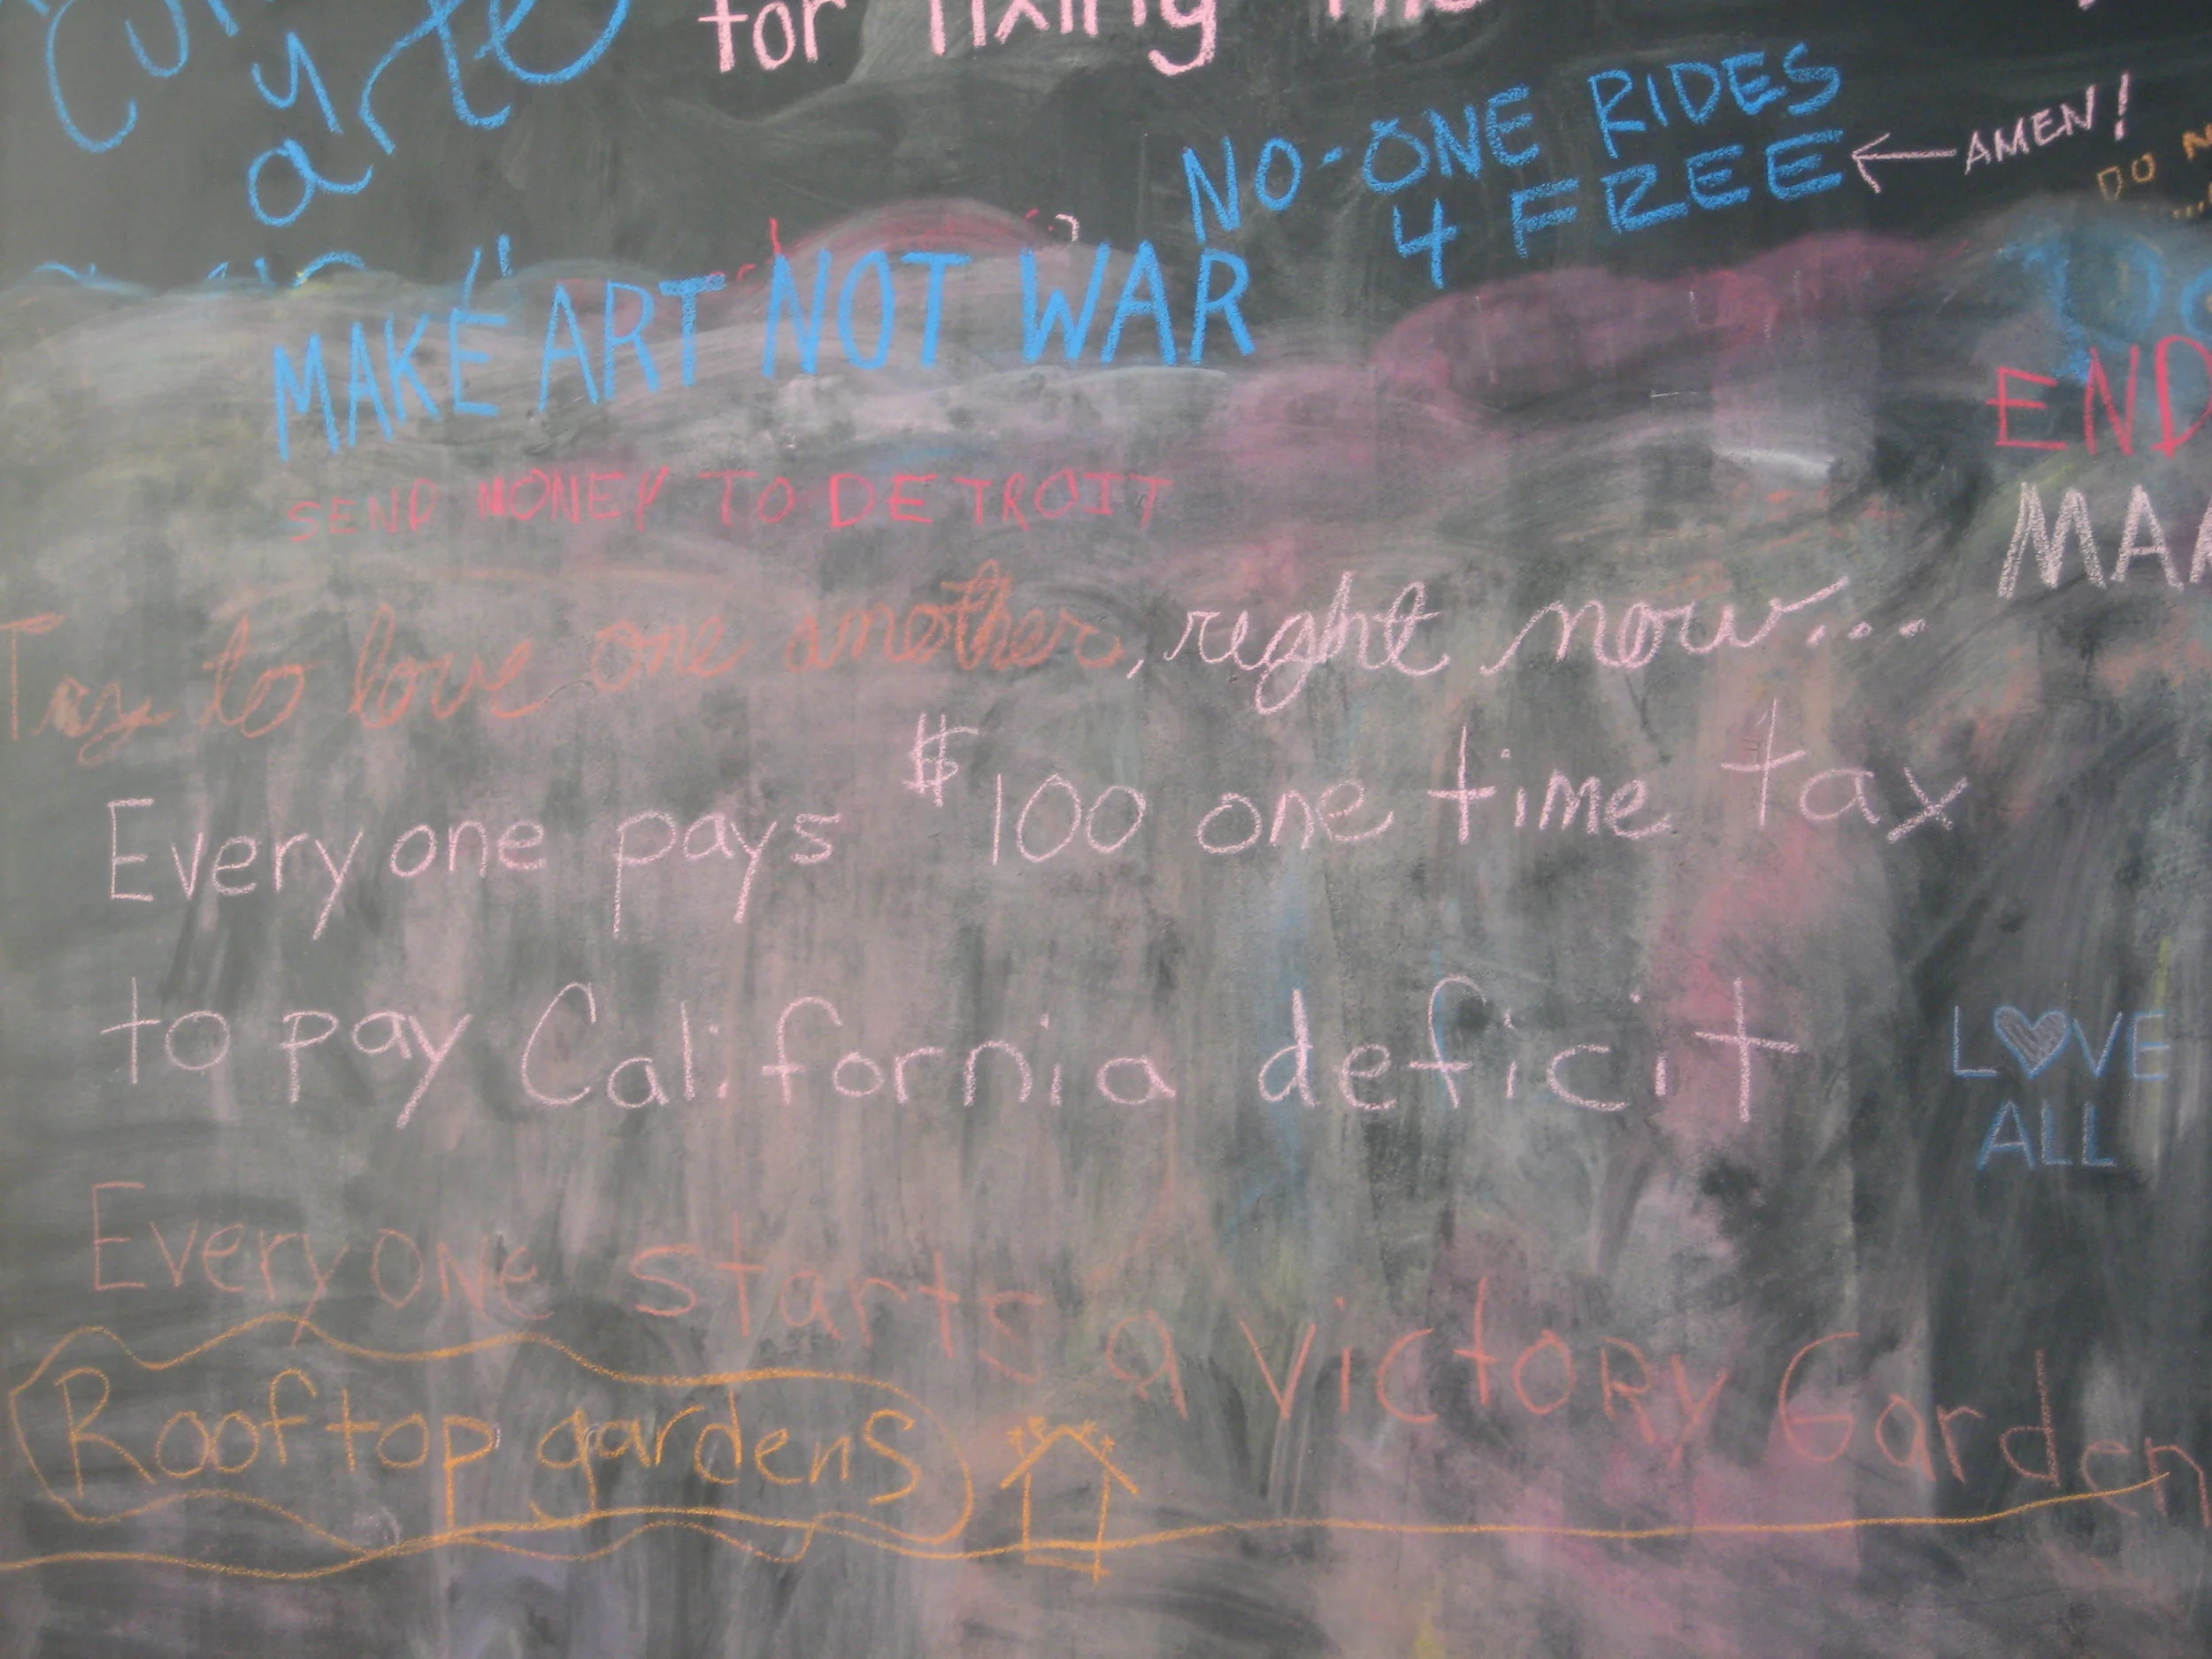 y
arte
for fixing
NO-ONE RIDES
4 FREE
AMEN!
DO
MAKE ART NOT WAR
END
SEND MONEY TO DETROIT
Try to love one another, right now...
Everyone pays $100 one time tax
to pay California deficit
LOVE
ALL
Everyone starts a victory Garden
Rooftop gardens